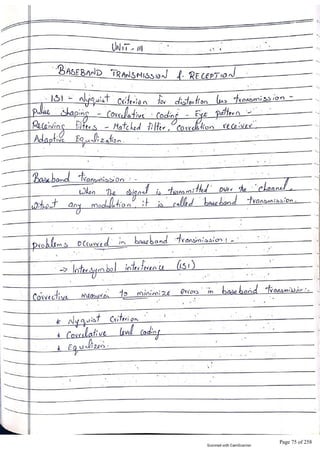 UNIT - III
BASEBAND TRANSMISSION & RECEPTION
ISI - Nyquist Criterion for distortion less transmission -
Pulse shaping - Correlative Coding - Eye pattern -
Receiving Filters - Matched Filter, Correlation receiver,
Adaptive Equalization.
Baseband transmission :-
When The signal is transmitted over the channel
without any modulation it is called baseband transmission.
problems occurred in baseband transmission :-
→ Intersymbol interference (ISI)
Corrective measures to minimize errors in baseband transmission :-
* Nyquist Criterion
* Correlative level coding
* Equalizers.
Scanned with CamScanner
Page 75 of 258